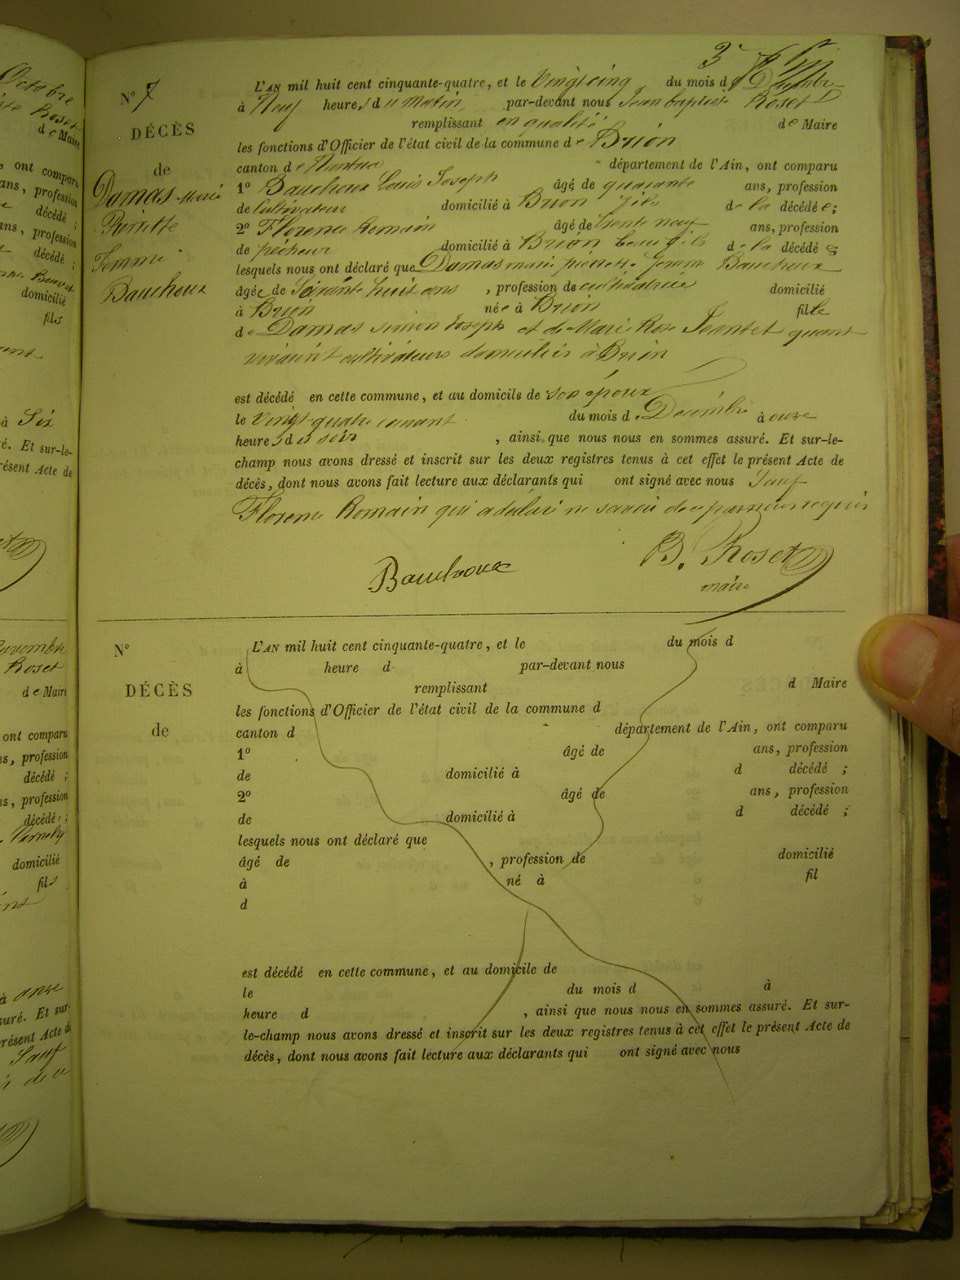 3
N° 7
DÉCÈS
de
Damas Marie
Pierrette
Femme
Baucheux
L'AN mil huit cent cinquante-quatre, et le vingt cinq du mois d
à Neuf heures du Matin par-devant nous Jean Baptiste Roset
remplissant en qualité de Maire
les fonctions d'Officier de l'état civil de la commune de Brion
canton de Nantua département de l'Ain, ont comparu
1° Baucheux Louis Joseph âgé de quarante ans, profession
de Cultivateur domicilié à Brion fils de la décédée;
2° Florence Romain âgé de trente neuf ans, profession
de pêcheur domicilié à Brion beau fils de la décédée
lesquels nous ont déclaré que Damas marie pierrette femme Baucheux
âgée de Soixante huit ans, profession de cultivatrice domicilié
à Brion née à Brion fille
de Damas Simon Joseph et de Marie Rose Jeantet quand
vivaient cultivateurs domiciliés à Brion
est décédé en cette commune, et au domicile de son époux
le vingt quatre courant du mois de Décembre à onze
heures du soir, ainsi que nous nous en sommes assuré. Et sur-le-
champ nous avons dressé et inscrit sur les deux registres tenus à cet effet le présent Acte de
décès, dont nous avons fait lecture aux déclarants qui ont signé avec nous Sauf
Florence Romain qui a déclaré ne savoir de ce requis
Baucheux B. Roset
maire
N°
DÉCÈS
de
L'AN mil huit cent cinquante-quatre, et le du mois d
à heure d par-devant nous
remplissant d Maire
les fonctions d'Officier de l'état civil de la commune d
canton d département de l'Ain, ont comparu
1° âgé de ans, profession
de domicilié à d décédé ;
2° âgé de ans, profession
de domicilié à d décédé ;
lesquels nous ont déclaré que
âgé de , profession de domicilié
à né à fil
d
est décédé en cette commune, et au domicile de
le du mois d à
heure d , ainsi que nous nous en sommes assuré. Et sur-
le-champ nous avons dressé et inscrit sur les deux registres tenus à cet effet le présent Acte de
décès, dont nous avons fait lecture aux déclarants qui ont signé avec nous